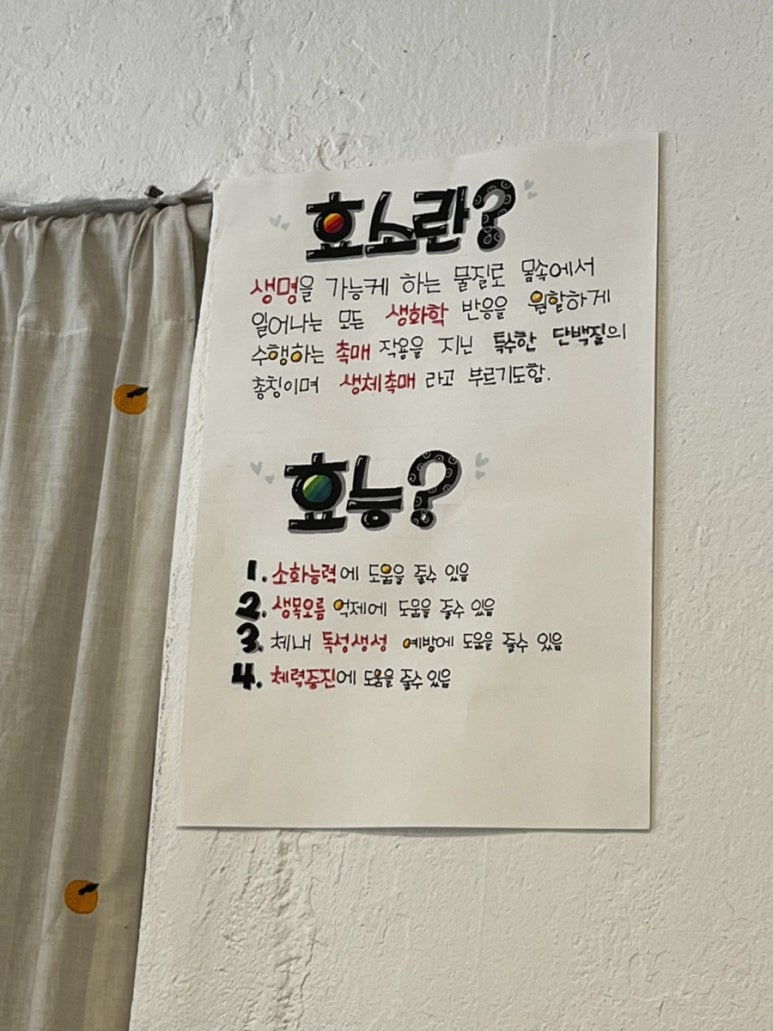 효소란?
생명을 가능케 하는 물질로 몸속에서
일어나는 모든 생화학 반응을 원할하게
수행하는 촉매 작용을 지닌 특수한 단백질의
총칭이며 생체촉매 라고 부르기도함.
효능?
1. 소화능력에 도움을 줄수 있음
2. 생목오름 억제에 도움을 줄수 있음
3. 체내 독성생성 예방에 도움을 줄수 있음
4. 체력증진에 도움을 줄수 있음